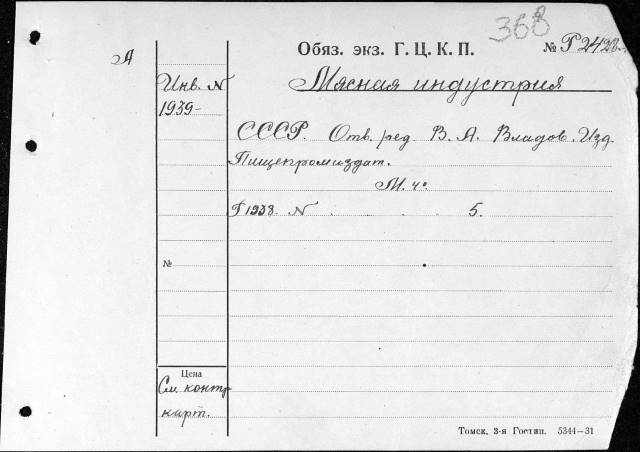 368
А
Обяз. экз. Г. Ц. К. П. № Р2428
Инв. N
1939-
Мясная индустрия
СССР. Отв. ред. В. А. Владов. Изд.
Пищепромиздат.
М. 4°
Г 1938. N . . . 5.
№
Цена
См. контр
карт.
Томск, 3-я Гостип. 5344—31